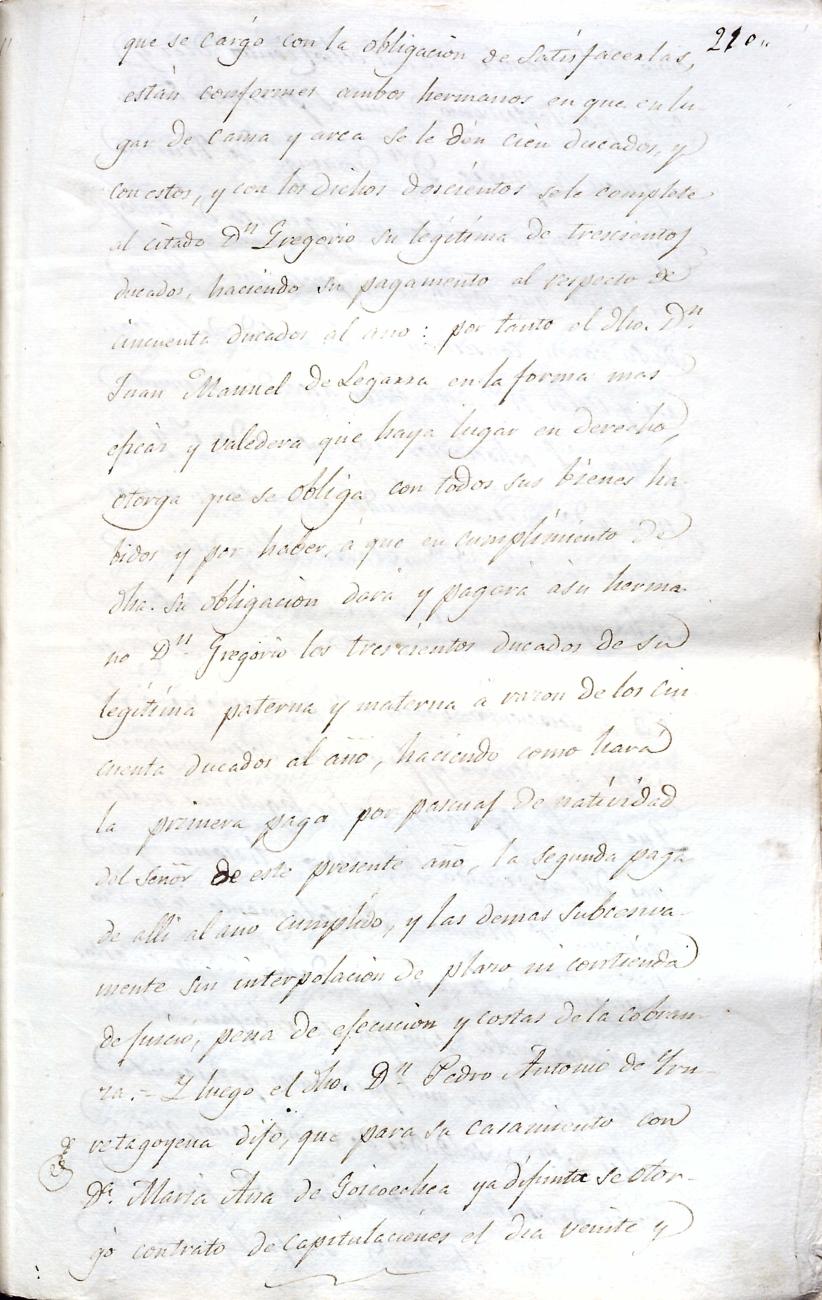 210,,
que se cargó con la obligacion de satisfacerlas,
están conformes ambos hermanos en que en lu-
gar de cama y arca se le dén cien ducados, y
con estos, y con los dichos doscientos se le complete
al citado Dn Gregorio su legitima de trescientos
ducados, haciendo su pagamento al respecto de
cincuenta ducados al ano: por tanto el dho. Dn.
Juan Manuel de Legarra en la forma mas
eficàz y valedera que haya lugar en derecho,
otorga que se obliga con todos sus bienes ha-
bidos y por haber, à que en cumplimiento de
dha. su obligacion dará y pagará à su herma-
no Dn. Gregorio los trescientos ducados de su
legitima paterna y materna à razon de los cin
cuenta ducados al año, haciendo como hará
la primera paga por pascuas de natividad
del Señor de este presente año, la segunda paga
de alli al ano cumplido, y las demas subcesiva-
mente sin interpolacion de plazo ni contienda
de juicio, pena de ejecucion y costas de la cobran-
za.= Y luego el dho. Dn. Pedro Antonio de Yru-
retagoyena dijo, que para su casamiento con
Da. Maria Ana de Goicoechea ya difunta se otor-
gó contrato de capitulaciones el dia veinte y